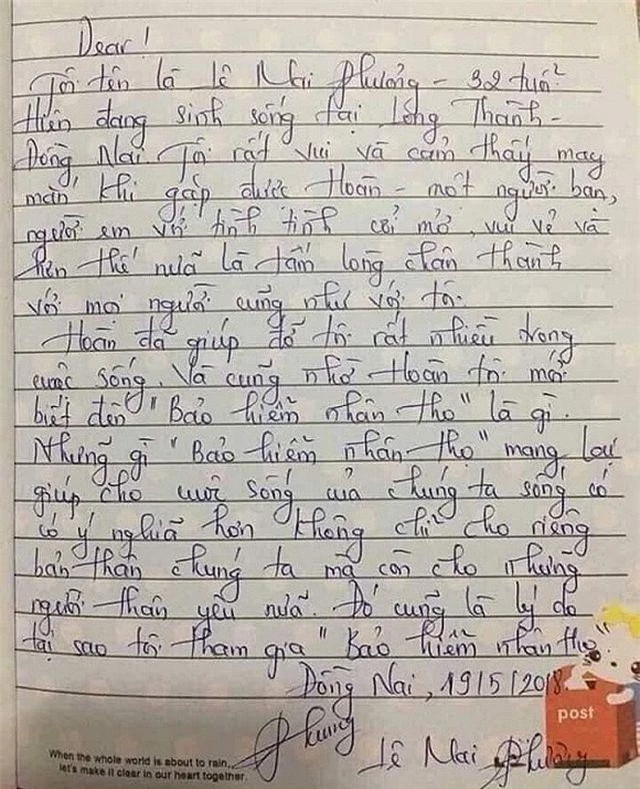 Dear!
Tôi tên là Lê Mai Phương - 32 tuổi
Hiện đang sinh sống tại Long Thành -
Đồng Nai Tôi rất vui và cảm thấy may
mắn khi gặp được Hoàn - một người bạn,
người em với tính tình cởi mở, vui vẻ và
hơn thế nữa là tấm lòng chân thành
với mọi người cũng như với tôi.
Hoàn đã giúp đỡ tôi rất nhiều trong
cuộc sống. Và cũng nhờ Hoàn tôi mới
biết đến "Bảo hiểm nhân thọ" là gì.
Những gì "Bảo hiểm nhân thọ" mang lại
giúp cho cuộc sống của chúng ta sống có
có ý nghĩa hơn không chỉ cho riêng
bản thân chúng ta mà còn cho những
người thân yêu nữa. Đó cũng là lý do
tại sao tôi tham gia "Bảo hiểm nhân thọ"
Đồng Nai, 19/5/2018.
Phung
Lê Mai Phương
post
When the whole world is about to rain,
let's make it clear in our heart together.